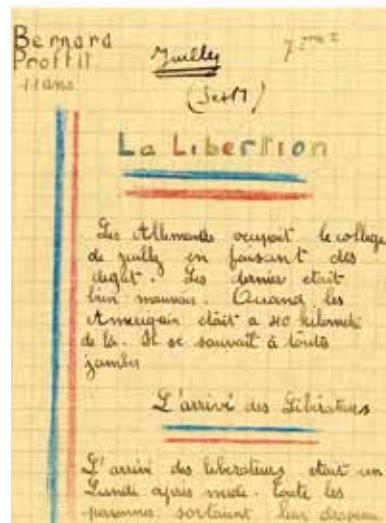 Bernard
Proffit
11 ans
Juilly
7ème I
(SetM)
La Libertion
Les Allemands ocupait le college
de juilly en faisant des
degat. Les dernier etait
bien mauvais. Quand les
était a 20 kilomètre
de la. Il se sauvait à toute
jambes
L'arrivé des Libérateurs
L'arrivé des liberateurs etait un
Lundi après midi. Toute les
personnes sortaient leur drapeau